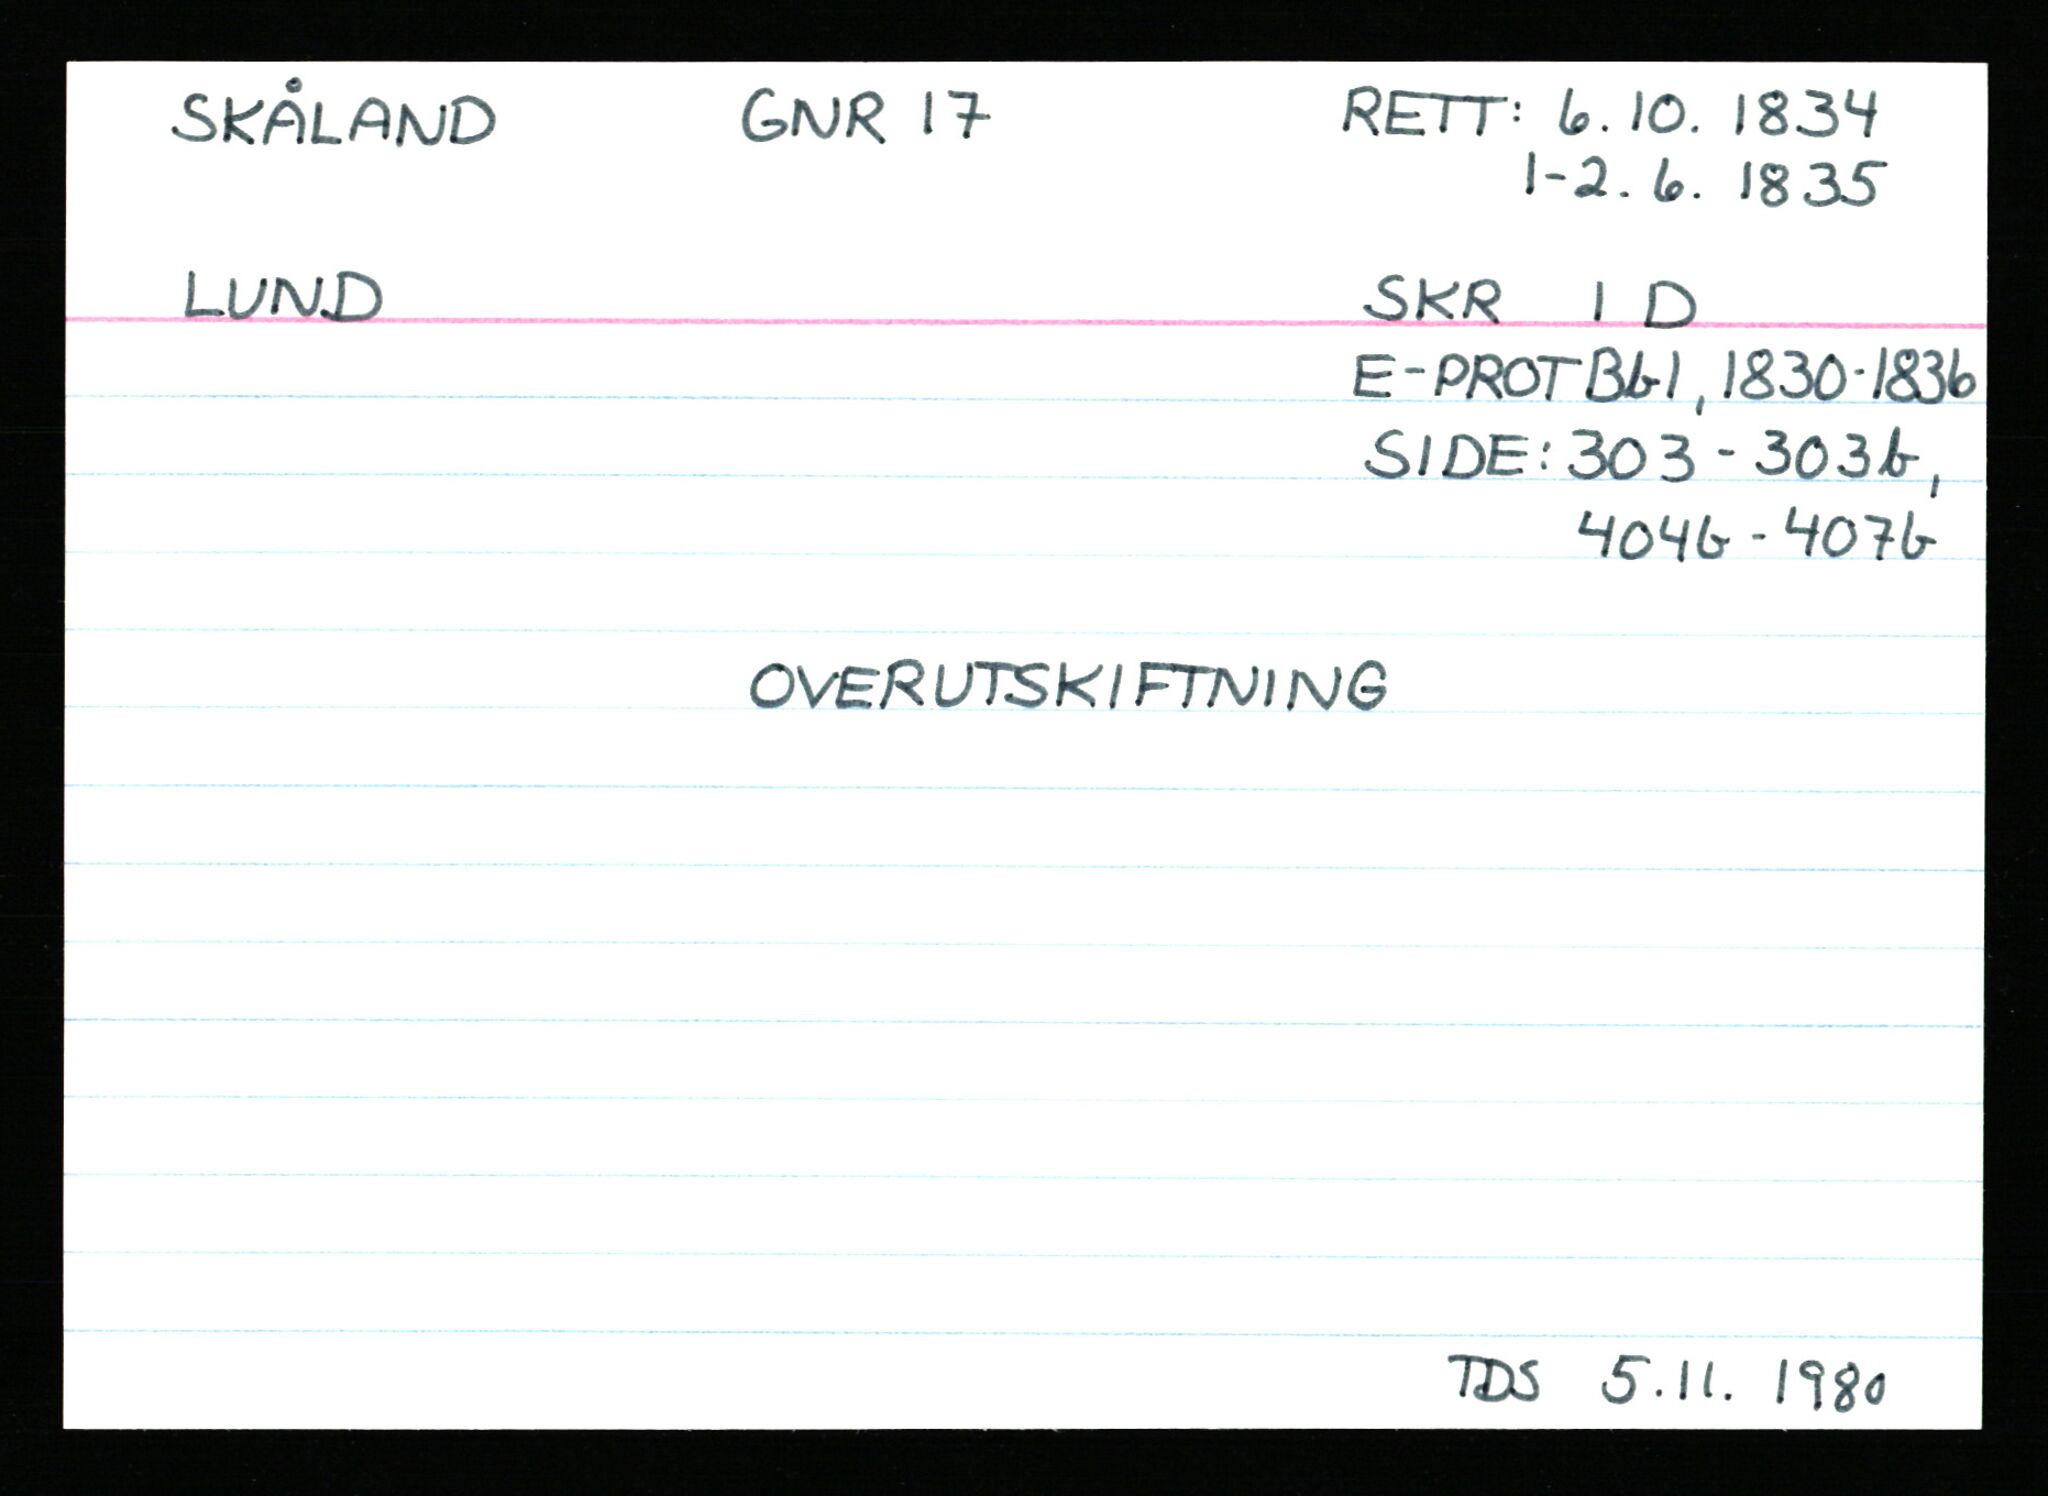 SKÅLAND GNR 17 RETT: 6.10. 1834
1-2. 6. 1835
LUND SKR 1 D
E-PROT Bb1, 1830-1836
SIDE: 303 - 303b,
404b - 407b
OVERUTSKIFTNING
TDS 5.11. 1980